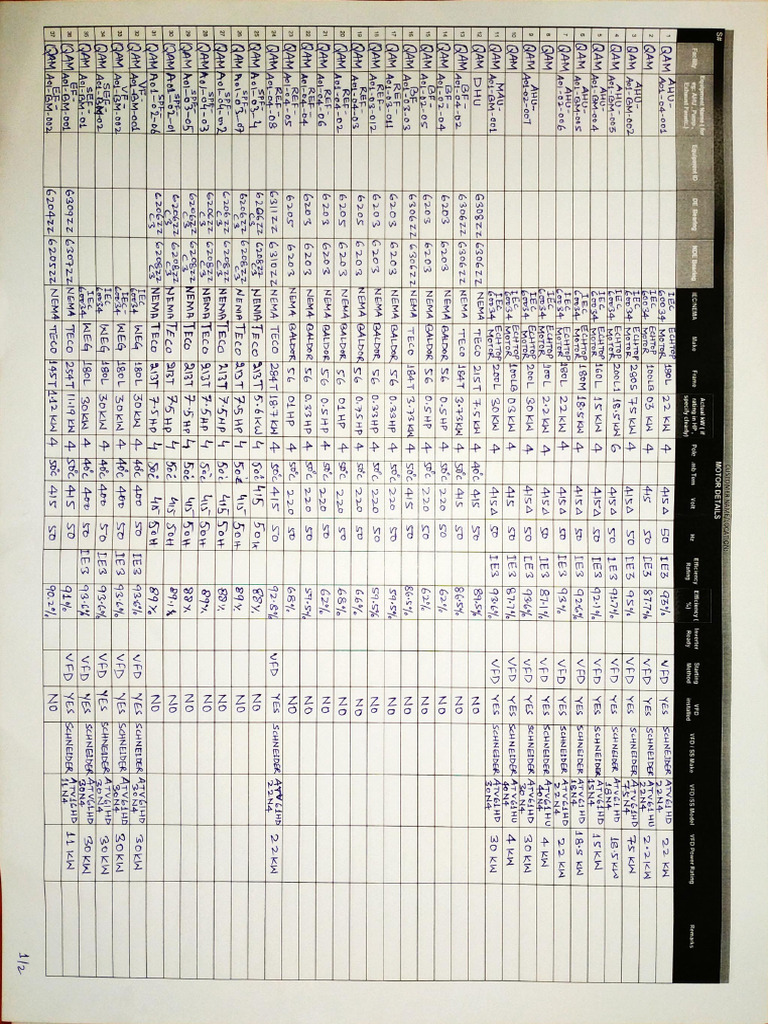 MOTOR DETAILS
S# Facility Equipment Name ( for eg: AHU, Pump, Exhaust Fan etc.) Equipment ID DE Bearing NDE Bearing IEC/NEMA Make Frame Actual kW ( if rating in HP, specify clearly) Pole Amb Tem Volt Hz Efficiency Rating Efficiency ( %) Inverter Ready Starting Method VFD installed VFD / SS Make VFD /SS Model VFD Power Rating Remarks
1 QAM AHU-A01-04-001 IEC 60034 ECHTOP MOTOR 180L 22 KW 4 415Δ 50 IE3 93% VFD YES SCHNEIDER ATV61HD 22N4 22 KW
2 QAM AHU IEC 60034 ECHTOP MOTOR 100LG 03 KW 4 415 50 IE3 87.7% VFD YES SCHNEIDER ATV61HU 22N4 2.2 KW
3 QAM AHU-A01-BM-002 IEC 60034 ECHTOP MOTOR 280S 75 KW 4 415Δ 50 IE3 95% VFD YES SCHNEIDER ATV61HD 75N4 75 KW
4 QAM AHU-A01-BM-003 IEC 60034 ECHTOP MOTOR 200L1 18.5 KW 6 415Δ 50 IE3 91.7% VFD YES SCHNEIDER ATV61HD 18N4 18.5 KW
5 QAM AHU-A01-BM-004 IEC 60034 ECHTOP MOTOR 160L 15 KW 4 415Δ 50 IE3 92.1% VFD YES SCHNEIDER ATV61HD 15N4 15 KW
6 QAM AHU-A01-BM-005 IEC 60034 ECHTOP MOTOR 180M 18.5 KW 4 415Δ 50 IE3 92.6% VFD YES SCHNEIDER ATV61HD 18N4 18.5 KW
7 QAM AHU-A01-02-006 IEC 60034 ECHTOP MOTOR 180L 22 KW 4 415Δ 50 IE3 93% VFD YES SCHNEIDER ATV61HD 22N4 22 KW
8 QAM IEC 60034 ECHTOP MOTOR 2.2 KW 4 415Δ 50 IE3 87.1% VFD YES SCHNEIDER ATV61HU 40N4 4 KW
9 QAM AHU-A01-02-007 IEC 60034 ECHTOP MOTOR 200L 30 KW 4 415Δ 50 IE3 93.6% VFD YES SCHNEIDER ATV61HD 30N4 30 KW
10 QAM IEC 60034 ECHTOP MOTOR 100LG 03 KW 4 415 50 IE3 87.7% VFD YES SCHNEIDER ATV61HU 40N4 4 KW
11 QAM MAU-A01-BM-001 IEC 60034 ECHTOP MOTOR 200L 30 KW 4 415Δ 50 IE3 93.6% VFD YES SCHNEIDER ATV61HD 30N4 30 KW
12 QAM DHU 6308ZZ 6306ZZ NEMA TECO 215T 7.5 KW 4 40°C 415 50 89.5% NO
13 QAM BF-A01-04-02 6306ZZ 6306ZZ NEMA TECO 184T 3.73KW 4 50°C 415 50 86.5% NO
14 QAM BF-A01-02-04 6203 6203 NEMA BALDOR 56 0.5HP 4 50°C 220 50 62% NO
15 QAM BF-A01-02-05 6203 6203 NEMA BALDOR 56 0.5 HP 4 50°C 220 50 62% NO
16 QAM BF-A01-02-03 6306ZZ 6306ZZ NEMA TECO 184T 3.73 KW 4 50°C 415 50 86.5% NO
17 QAM REF-A01-03-011 6203 6203 NEMA BALDOR 56 0.33HP 4 50°C 220 50 59.5% NO
18 QAM REF-A01-03-012 6203 6203 NEMA BALDOR 56 0.33HP 4 50°C 220 50 59.5% NO
19 QAM REF-A01-02-03 6203 6203 NEMA BALDOR 56 0.75 HP 4 50°C 220 50 66% NO
20 QAM REF-A01-03-02 6205 6203 NEMA BALDOR 56 01 HP 4 50°C 220 50 68% NO
21 QAM REF-A01-04-06 6203 6203 NEMA BALDOR 56 0.5HP 4 50°C 220 50 62% NO
22 QAM REF-A01-04-04 6203 6203 NEMA BALDOR 56 0.33HP 4 50°C 220 50 59.5% NO
23 QAM REF-A01-04-05 6205 6203 NEMA BALDOR 56 01 HP 4 50°C 220 50 68% NO
24 QAM REF-A01-04-08 6311ZZ 6310ZZ NEMA TECO 284T 18.7 KW 4 50°C 415 50 92.8% VFD YES SCHNEIDER ATV61HD 22N4 22 KW
25 QAM SPF- 6206ZZ C3 6208ZZ NEMA TECO 213T 5.6 KW 4 50°C 415 50H 88% NO
26 QAM SPF- 6206ZZ C3 6208ZZ NEMA TECO 213T 7.5 HP 4 50°C 415 50H 89% NO
27 QAM SPF-A01-04-02 6206ZZ C3 6208ZZ NEMA TECO 213T 7.5HP 4 50°C 415 50H 88% NO
28 QAM SPF-A01-01-03 6206ZZ C3 6208ZZ NEMA TECO 213T 7.5HP 4 50°C 415 50H 89% NO
29 QAM SPF- 6206ZZ C3 6208ZZ NEMA TECO 213T 7.5HP 4 50°C 415 50H 88% NO
30 QAM SPF- 6206ZZ C3 6208ZZ NEMA TECO 213T 7.5 HP 4 50°C 415 50H 89.1% NO
31 QAM A01-02-06 6206ZZ C3 6208ZZ NEMA TECO 213T 7.5HP 4 50°C 415 50H 89% NO
32 QAM VF-A01-BM-001 IEC 60034 WEG 180L 30KW 4 40°C 400 50 IE3 93.6% VFD YES SCHNEIDER ATV61HD 30N4 30KW
33 QAM VEF-A01-BM-002 IEC 60034 WEG 180L 30 KW 4 40°C 400 50 IE3 93.6% VFD YES SCHNEIDER ATV61HD 30N4 30KW
34 QAM SEF-A01-BM-02 IEC 60034 WEG 180L 30KW 4 40°C 400 50 IE3 93.6% VFD YES SCHNEIDER ATV61HD 30N4 30 KW
35 QAM SEF-A01-BM-01 IEC 60034 WEG 180L 30KW 4 40°C 400 50 IE3 93.6% VFD YES SCHNEIDER ATV61HD 30N4 30KW
36 QAM EF-A01-BM-001 6309ZZ 6307ZZ NEMA TECO 254T 11.19 KW 4 50°C 415 50 91% VFD YES SCHNEIDER ATV61HD 11N4 11 KW
37 QAM EF-A01-BM-002 6204ZZ 6205ZZ NEMA TECO 145T 1.12 KW 4 50°C 415 50 90.2% NO
1/2